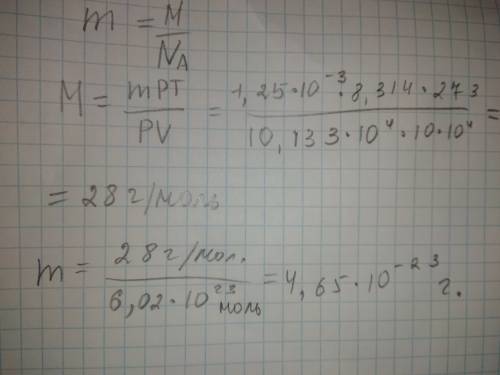 m = M / N_A
M = mPT / PV = 1,25·10⁻³·8,314·273 / 10,133·10⁴·10·10⁴ =
= 28 г/моль
m = 28 г/мол. / 6,02·10²³ моль = 4,65·10⁻²³ г.